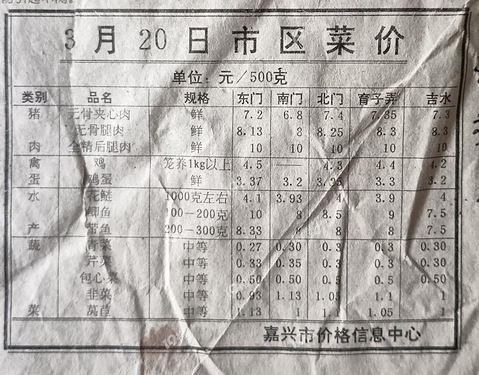 3月20日市区菜价
单位：元／500克
类别 品名 规格 东门 南门 北门 育子弄 吉水
猪 无骨夹心肉 鲜 7.2 6.8 7.4 7.35 7.3
无骨腿肉 鲜 8.13 8 8.25 8.3 8.3
肉 全精后腿肉 鲜 10 10 10 10 10
禽 鸡 笼养1kg以上 4.5 —— 4.3 4.4 4.2
蛋 鸡蛋 鲜 3.37 3.2 3.25 3.3 3.2
水 花鲢 1000克左右 4.1 3.93 4 3.9 4
鲫鱼 100－200克 10 8 8.5 9 7.5
产 带鱼 200－300克 8.33 8 8 8 7.5
蔬 青菜 中等 0.27 0.30 0.3 0.3 0.30
芹菜 中等 0.33 0.35 0.3 0.3 0.30
包心菜 中等 0.50 0.50 0.5 0.5 0.50
韭菜 中等 0.93 1.13 1.05 1.1 1
菜 莴苣 中等 1.13 1 1.1 1.05 1
嘉兴市价格信息中心